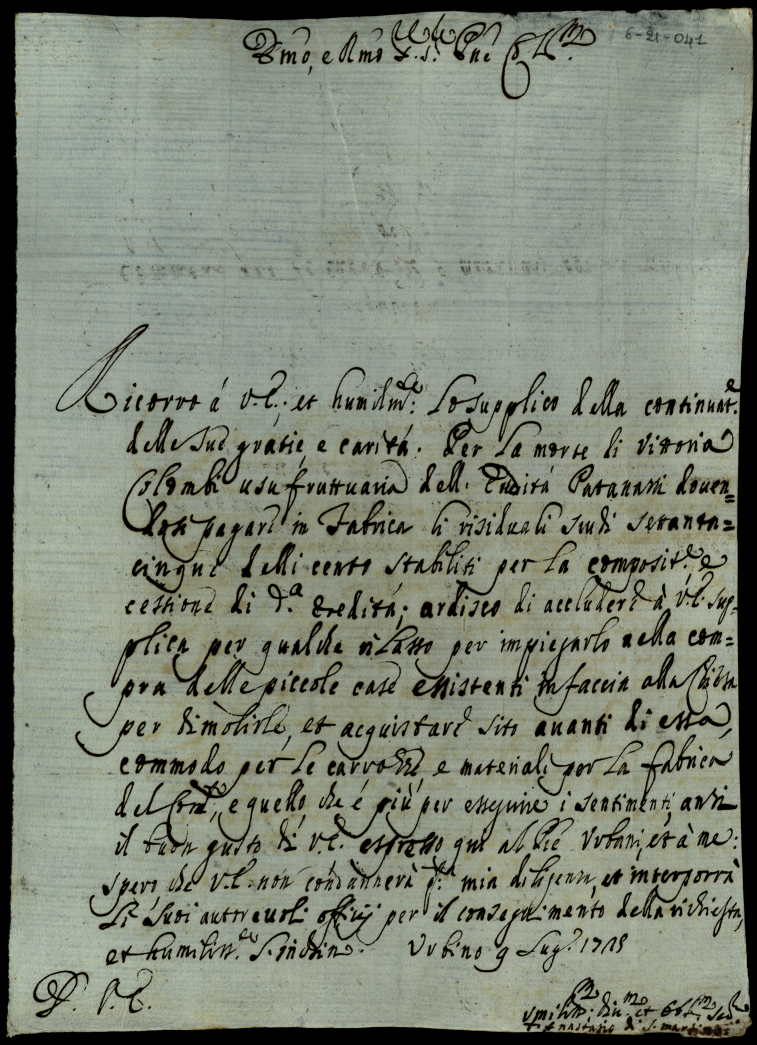 6-21-041
Emo, e Rmo S. Pne
Ricorro á V.E., et humilm.e: Lo supplico della continuat.e
delle sue gratie, e caritá. Per la morte di Vittoria
Colombi usufruttuaria dell' Eredità Patanazzi doven=
dosi pagare in Fabrica li risiduali scudi settanta=
cinque delli cento stabiliti per la composit.e e
cessione di d.a eredità; ardisco di accludere à V.E. sup=
plica per qualche rilasso per impiegarlo nella com=
pra delle piccole case essistenti in faccia alla Chiesa
per dimolirle, et acquistare sito avanti di essa,
commodo per le carrozze, e materiali per la fabrica
del , e quello, che é più per esseguire i sentimenti, anzi
il buon gusto di V.E. espresso qui al Urbani, et à me:
spero che V.E. non condannerà q.a mia diligenza, et interporrà
Li suoi autorevoli officij per il conseguimento della richiesta,
et humiliss.e Urbino 9 Lug.o 1715
D. V.E.
Umiliss. div.mo et obbl.mo
F. Anastasio di S.